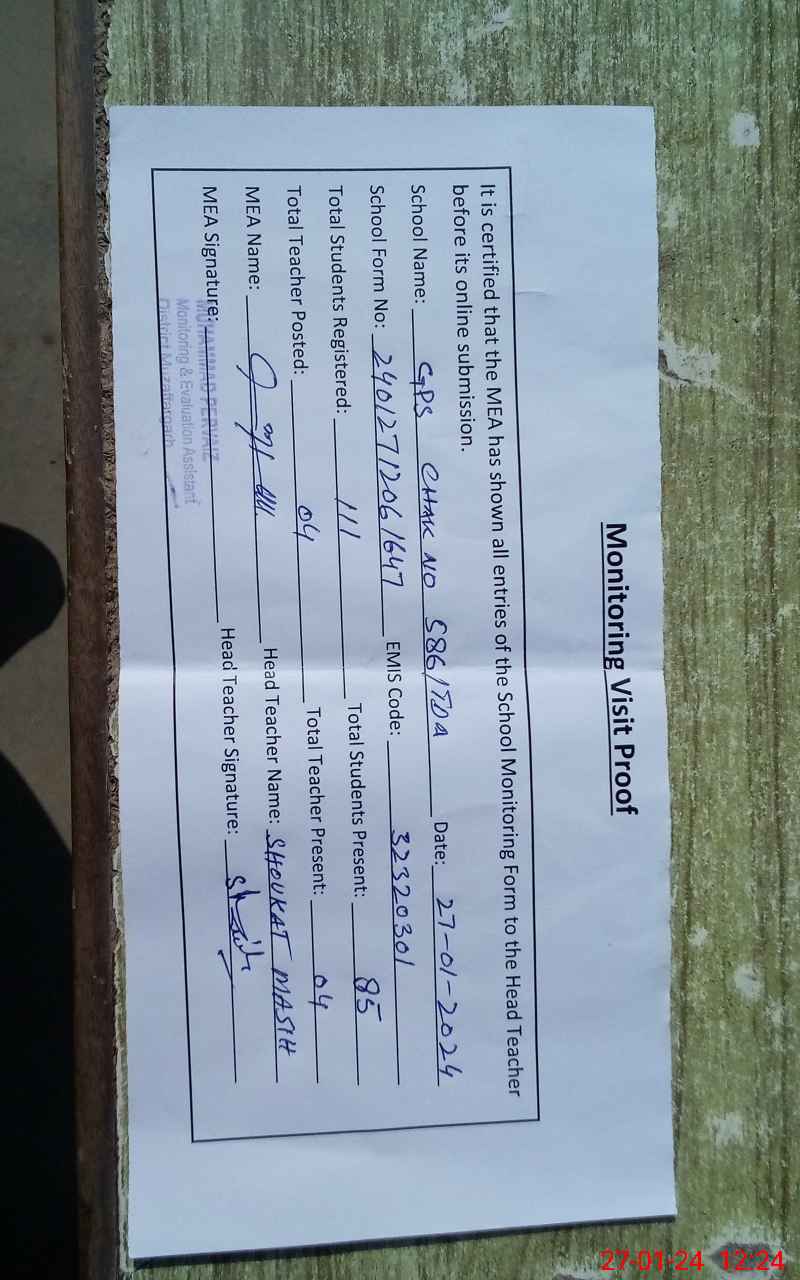 Monitoring Visit Proof
It is certified that the MEA has shown all entries of the School Monitoring Form to the Head Teacher
before its online submission.
School Name: GPS CHAK NO 586/TDA Date: 27-01-2024
School Form No: 24012712061647 EMIS Code: 32320301
Total Students Registered: 111 Total Students Present: 85
Total Teacher Posted: 04 Total Teacher Present: 04
MEA Name: Head Teacher Name: SHOUKAT MASIH
MEA Signature: Head Teacher Signature:
MUHAMMAD PERVAIZ
Monitoring & Evaluation Assistant
District Muzaffargarh
27-01-24 12:24